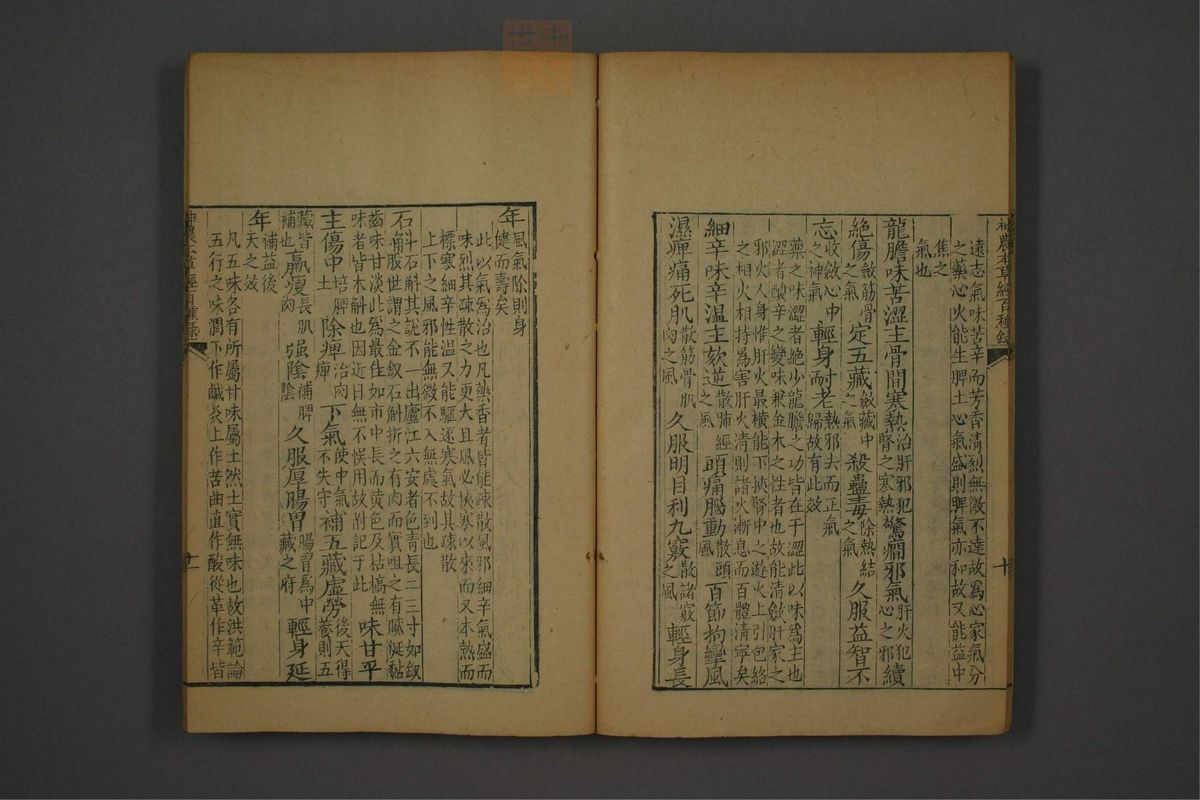 神農本草經百種錄
十
遠志氣味苦辛而芳香清烈無微不達故爲心家氣分
之藥心火能生脾土心氣盛則脾氣亦和故又能益中
焦之
氣也
龍膽味苦澀主骨間寒熱治肝邪犯腎之寒熱驚癇邪氣肝火犯心之邪續
絕傷斂筋骨之氣定五藏斂藏中之氣殺蠱毒除熱結之氣久服益智不
忘收斂心中之神氣輕身耐老熱邪去而正氣歸故有此效
藥之味澀者絕少龍膽之功皆在于澀此以味爲主也
澀者酸辛之變味兼金木之性者也故能清斂肝家之
邪火人身惟肝火最橫能下挾腎中之遊火上引包絡
之相火相持爲害肝火清則諸火漸息而百體清寧矣
細辛味辛温主欬逆散肺經之風頭痛腦動散頭風百節拘攣風
濕痺痛死肌散筋骨肌肉之風久服明目利九竅散諸竅之風輕身長
年風氣除則身健而壽矣
此以氣爲治也凡藥香者皆能疎散風邪細辛氣盛而
味烈其疎散之力更大且風必挾寒以來而又本熱而
標寒細辛性温又能驅逐寒氣故其疎散
上下之風邪能無微不入無處不到也
石斛石斛其說不一出廬江六安者色青長二三寸如釵
股世謂之金釵石斛折之有肉而實咀之有膩涎黏
齒味甘淡此爲最佳如市中長而黄色及枯槁無
味者皆木斛也因近日無不悮用故附記于此味甘平
主傷中培脾土除痺治肉痺下氣使中氣不失守補五藏虛勞後天得養則五
藏皆補也羸瘦長肌肉强陰補脾陰久服厚腸胃腸胃爲中藏之府輕身延
年補益後天之效
凡五味各有所屬甘味屬土然土實無味也故洪範論
五行之味潤下作鹹炎上作苦曲直作酸從革作辛皆
神農本草經百種錄